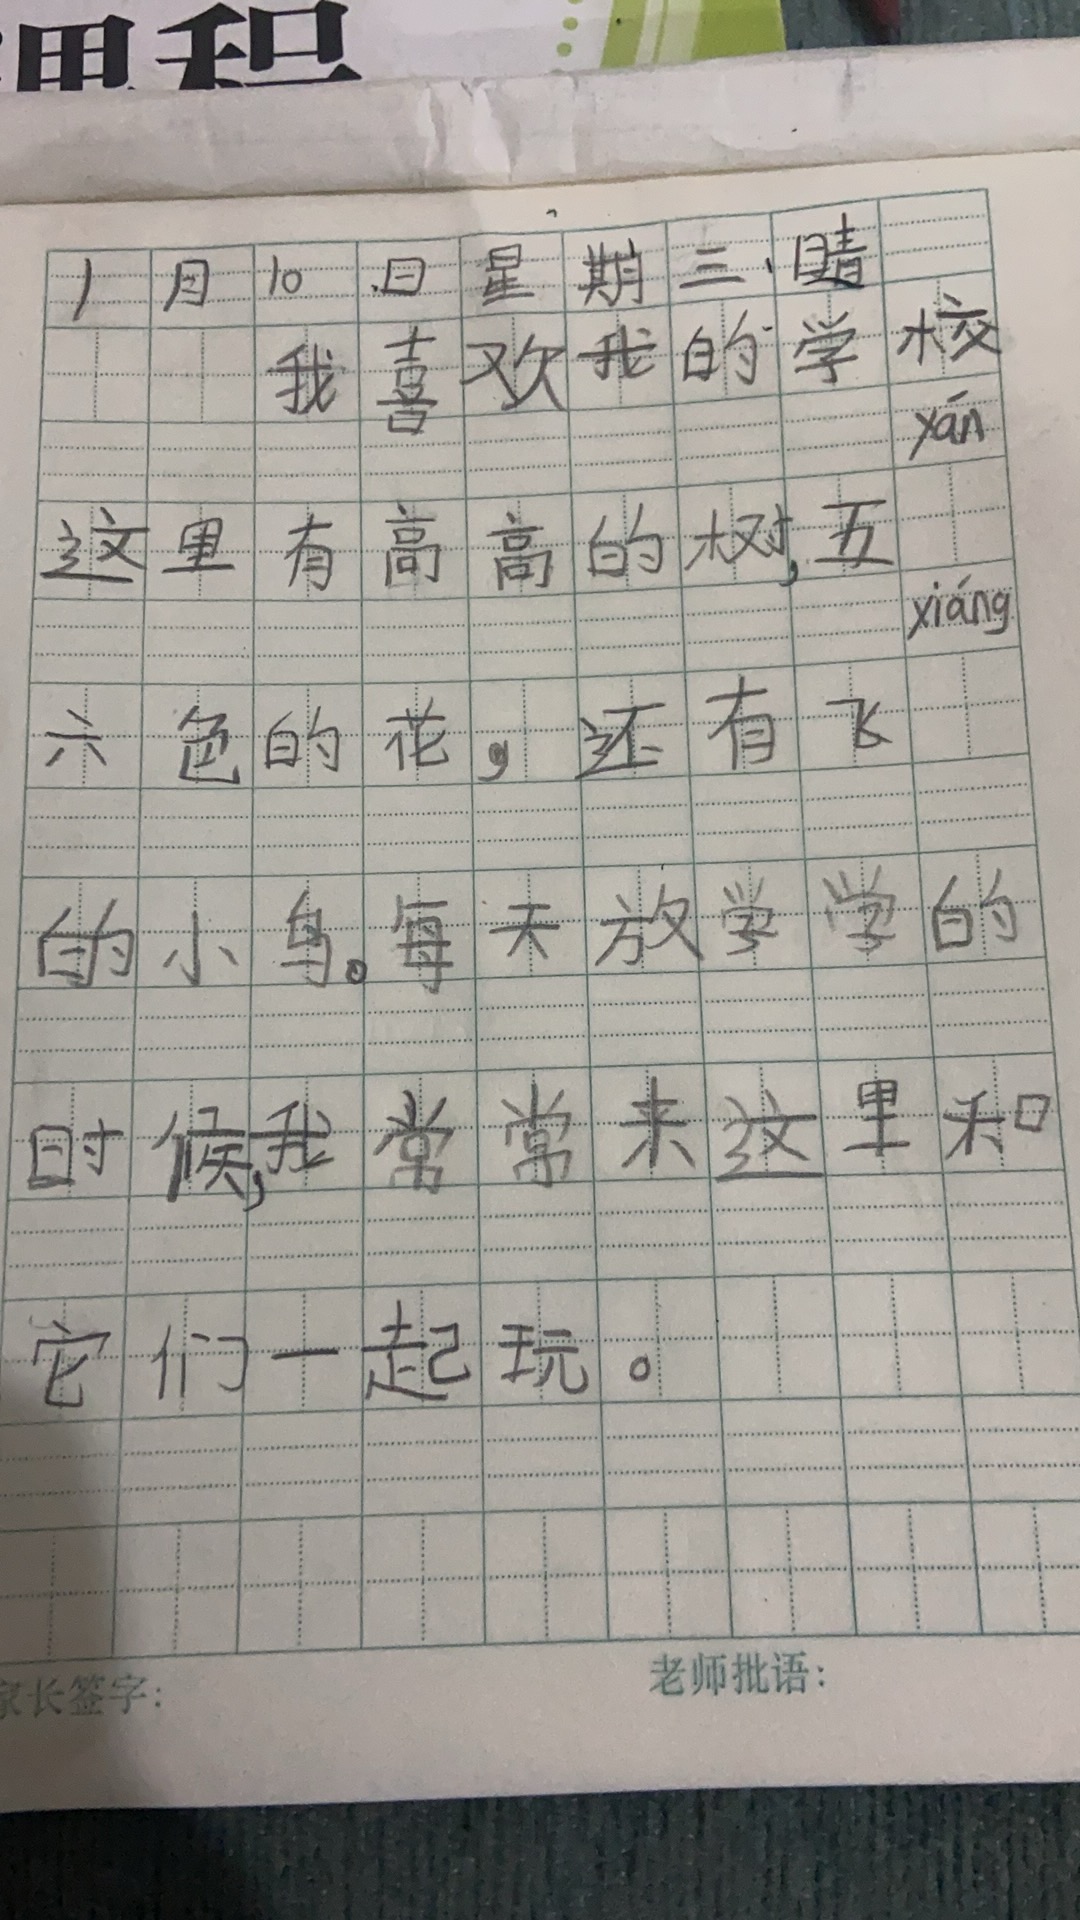 课程
1月10日星期三、晴
我喜欢我的学校
yán
这里有高高的树,五
xiáng
六色的花,还有飞
的小鸟。每天放学学的
时候,我常常来这里和
它们一起玩。
家长签字: 老师批语: